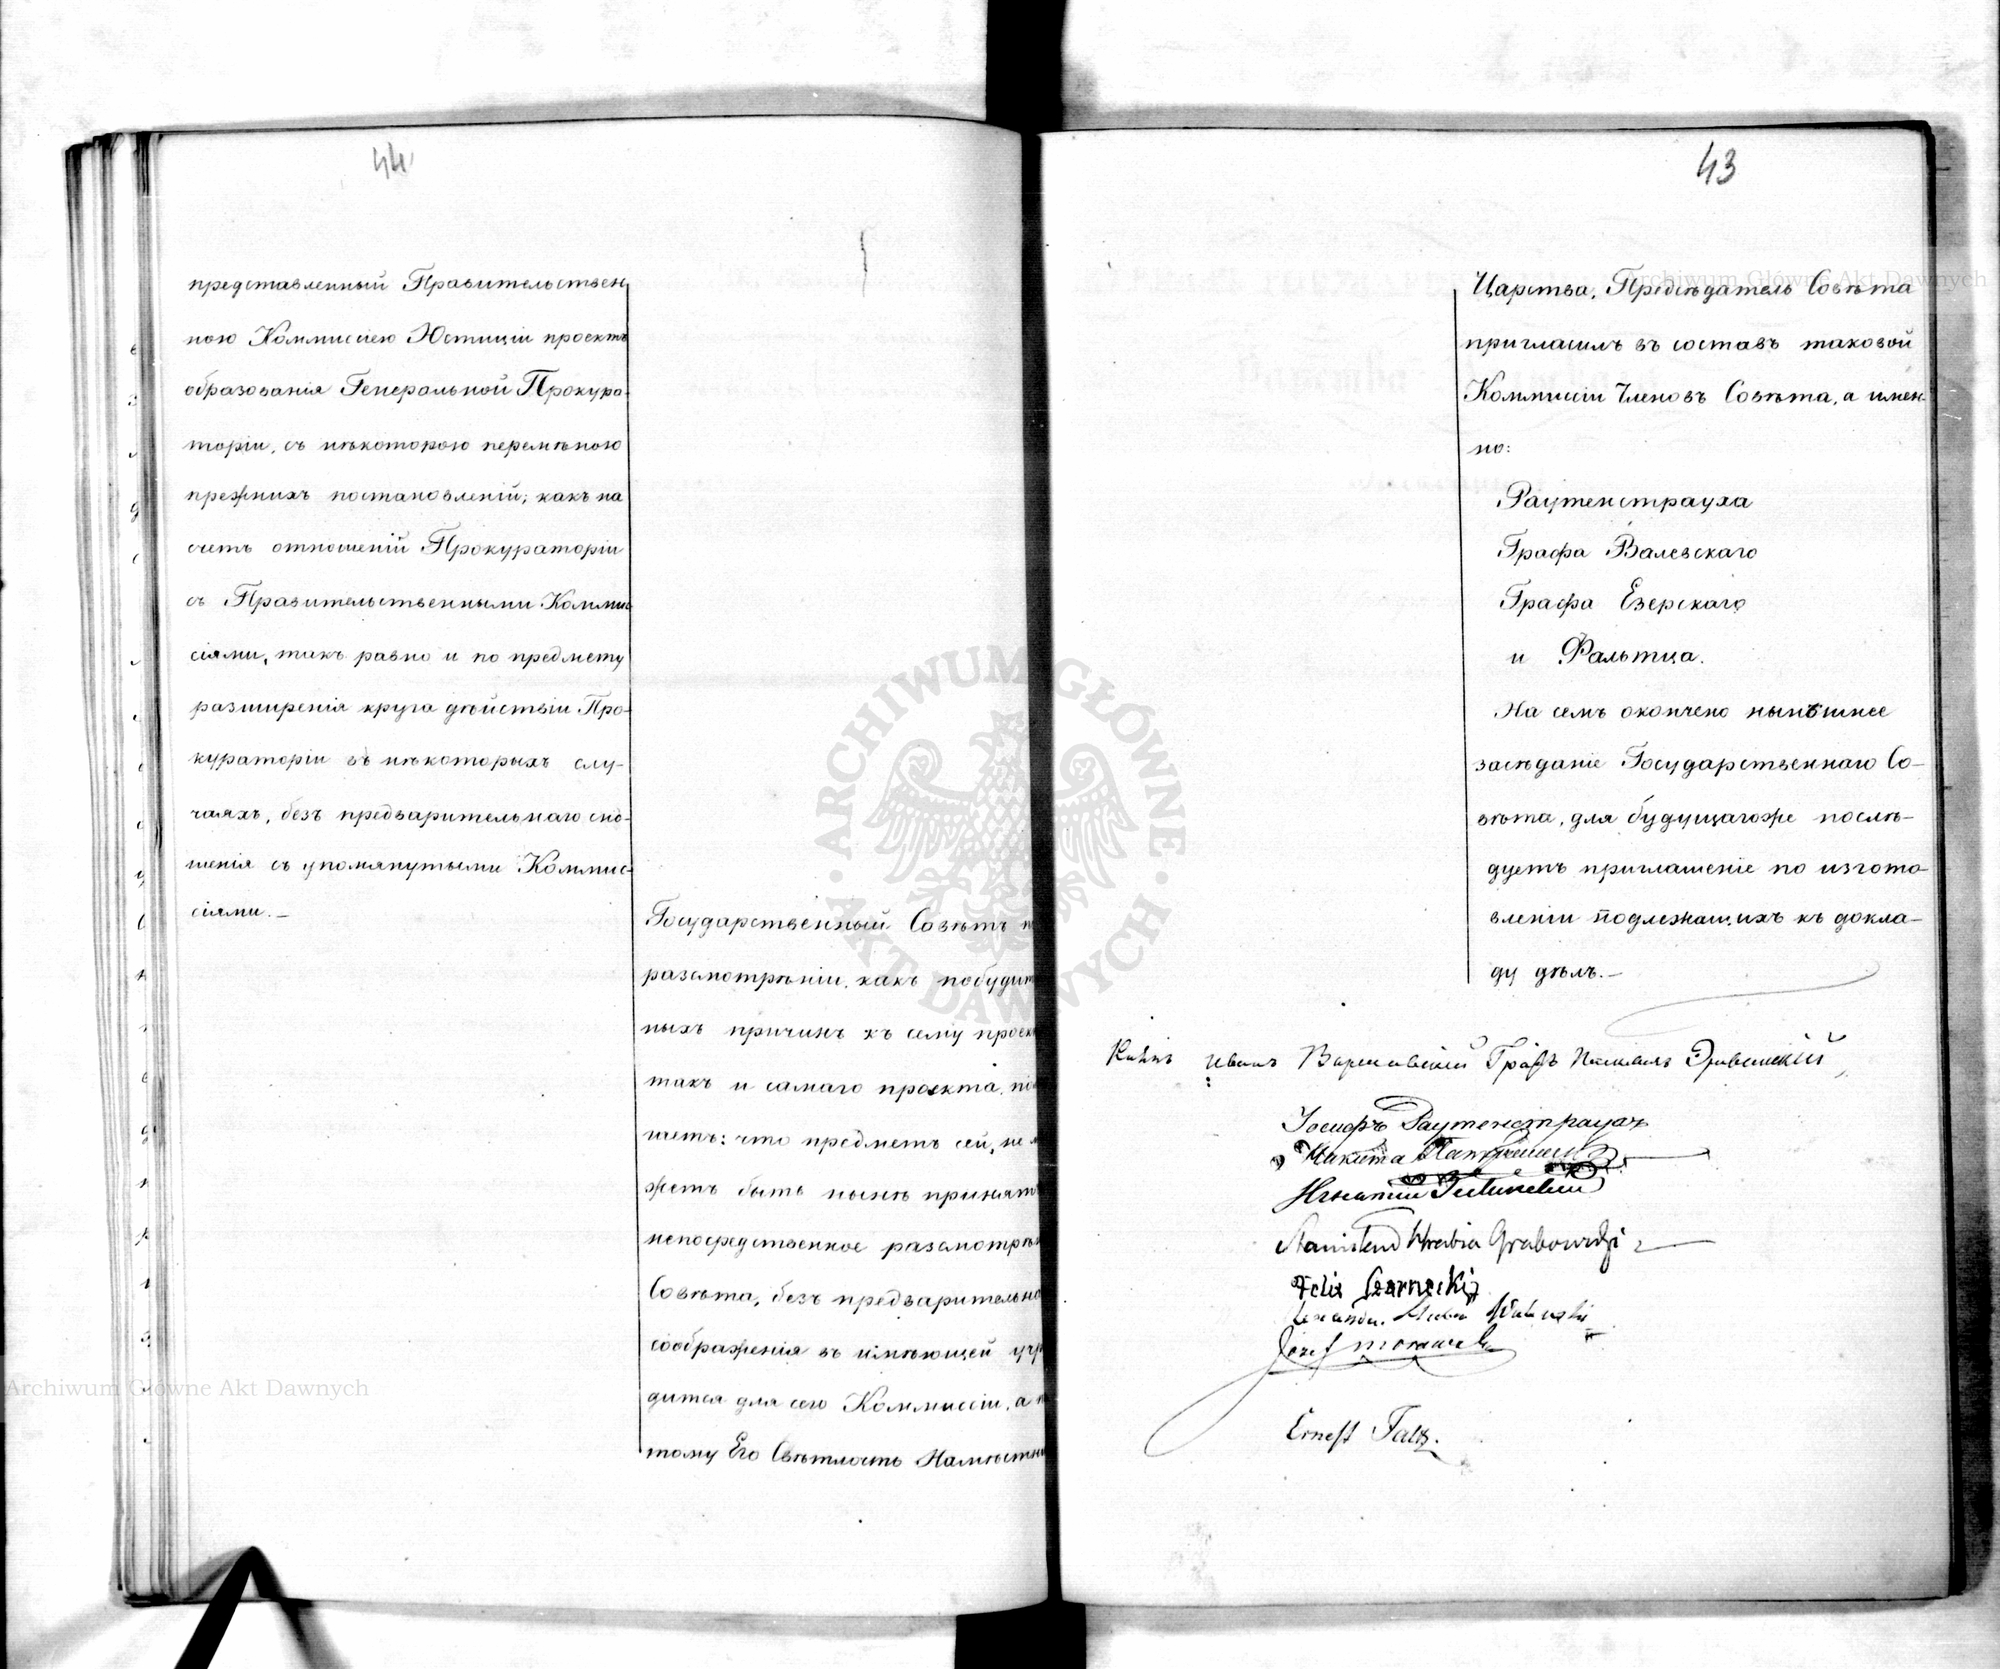 44
представленный Правительствен
ною Коммиссіею Юстиціи проектъ
образованія Генеральной Прокура-
торіи, съ нѣкоторою перемѣною
прежнихъ постановленій; какъ на
счетъ отношеній Прокураторіи
съ Правительственными Коммис
сіями, такъ равно и по предмету
разширенія круга дѣйствіи Про-
кураторіи въ нѣкоторыхъ слу-
чаяхъ, безъ предварительнаго сно-
шенія съ упомянутыми Коммис-
сіями.—
Государственный Совѣтъ
разсмотрѣніи, какъ побудит
ныхъ причинъ къ сему проек
такъ и самаго проекта,
что предметъ сей, не
жетъ быть нынѣ принятъ
непосредственное разсмотрѣн
Совѣта, безъ предварительна
соображенія въ имѣющей учр
дится для сего Коммиссіи, а
тому Его Свѣтлость Намѣстни
43
Царства, Предсѣдатель Совѣта
пригласилъ въ составъ таковой
Коммиссіи Членовъ Совѣта, а имен
но:
Раутенстрауха
Графа Валевскаго
Графа Езерскаго
и Фальтца.
На семъ окончено нынѣшнее
засѣданіе Государственнаго Со-
вѣта, для будущагоже послѣ-
дуетъ приглашеніе по изгото-
вленіи подлежащихъ къ докла-
ду дѣлъ.—
Князь Иванъ Варшавскій Графъ Паскевичъ Эриванскій
Іосифъ Раутенстраухъ
Никита
Игнатій
Hrabia Grabowski
Felix Czarnecki
Józef Morawski
Ernest Faltz.
ARCHIWUM GŁÓWNE AKT DAWNYCH
Archiwum Główne Akt Dawnych
Archiwum Główne Akt Dawnych